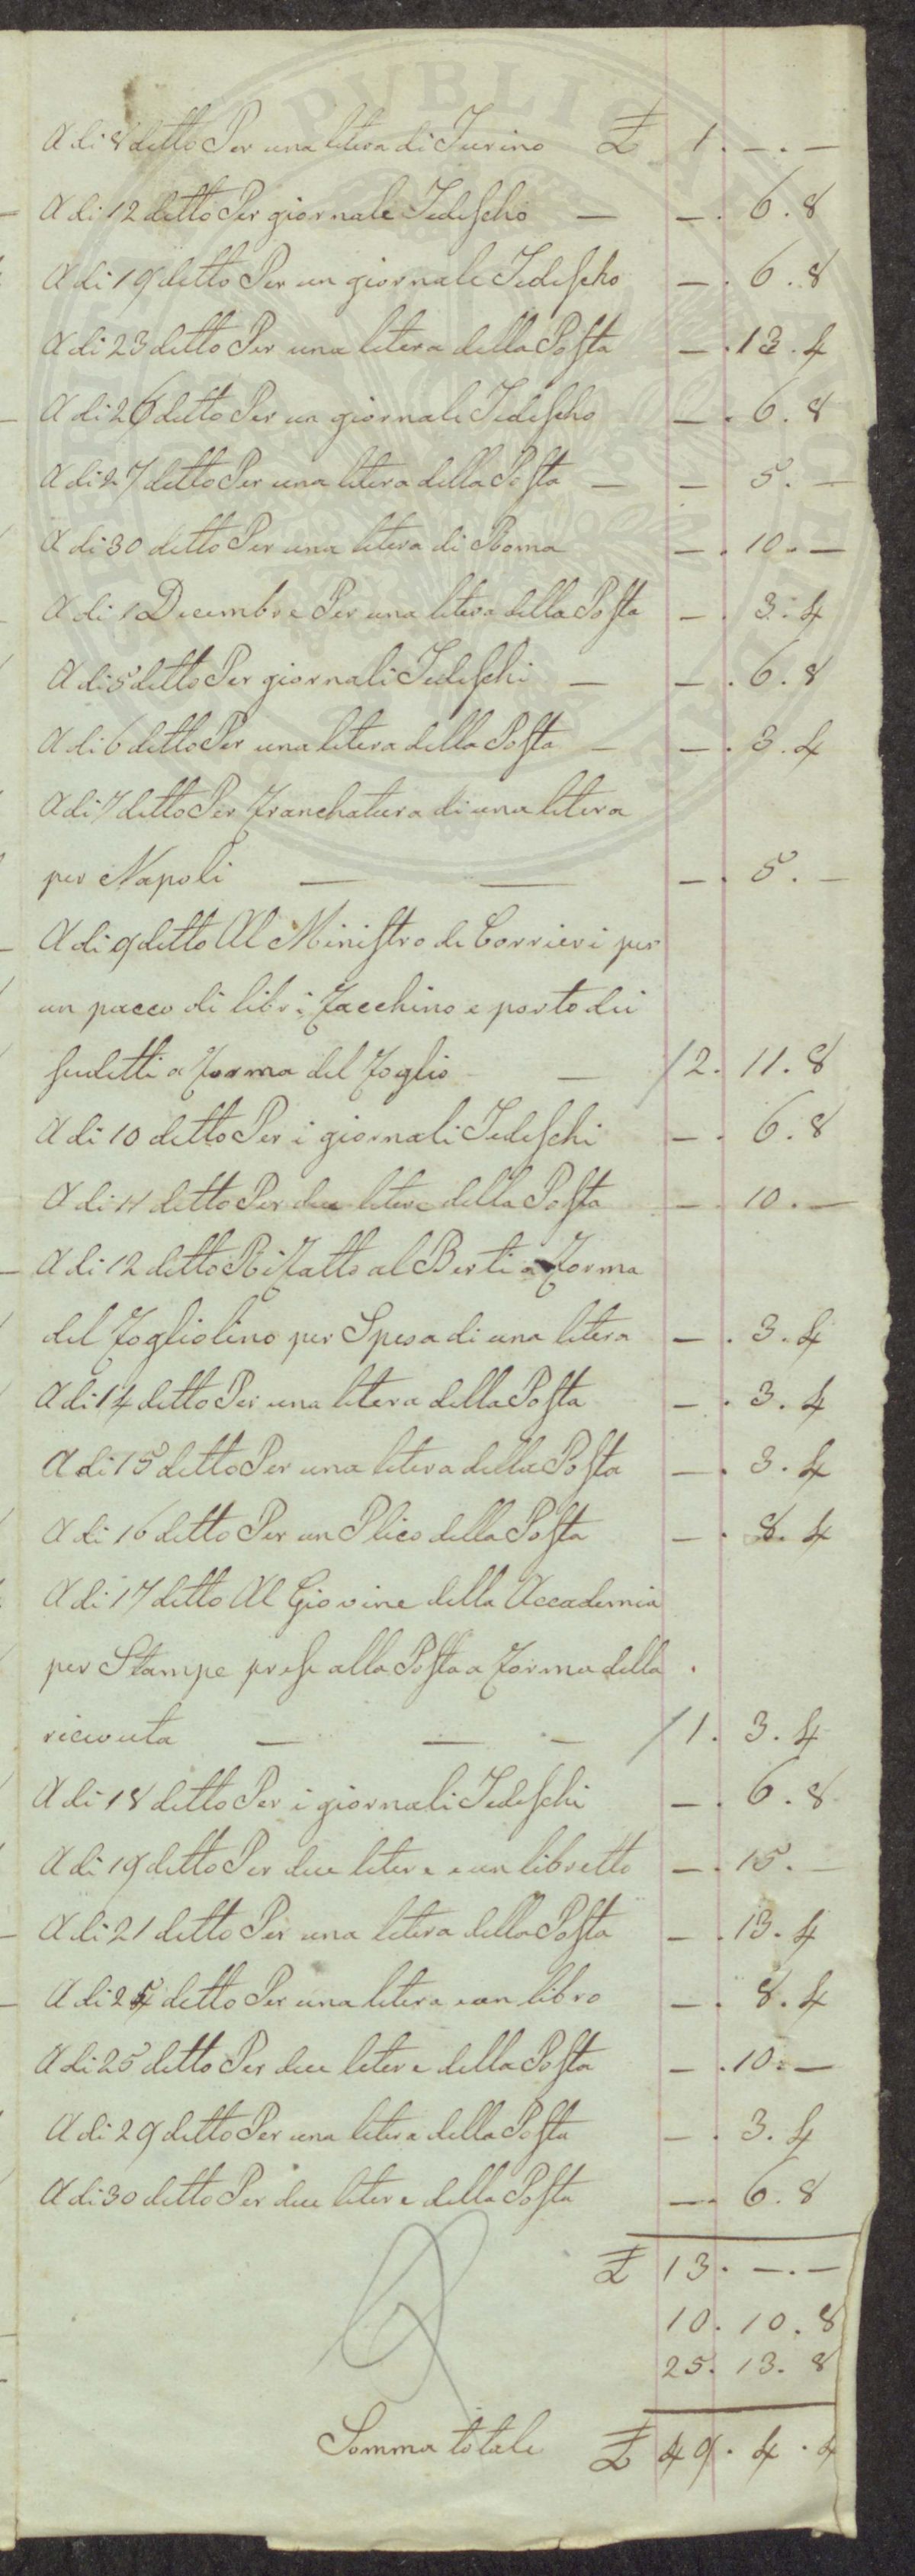 PVBLICA
A di 8 detto Per una litera di Turino £ 1. —. —
A di 12 detto Per giornale Tedescho — —. 6. 8
A di 19 detto Per un giornale Tedescho —. 6. 8
A di 23 detto Per una litera della Posta —. 13. 4
A di 26 detto Per un giornale Tedescho —. 6. 8
A di 27 detto Per una litera della Posta — — 5. —
A di 30 detto Per una litera di Roma —. 10. —
A di 1 Decembre Per una litera della Posta —. 3. 4
A di 5 detto Per giornali Tedeschi — —. 6. 8
A di 6 detto Per una litera della Posta — —. 3. 4
A di 7 detto Per Franchatura di una litera
per Napoli — — —. 5. —
A di 9 detto Al Ministro de Corrieri per
un pacco di libri Facchino e porto dei
sudetti a Forma del Foglio — / 2. 11. 8
A di 10 detto Per i giornali Tedeschi —. 6. 8
A di 11 detto Per due litere della Posta —. 10. —
A di 12 detto RiFatto al Berti a Forma
del Fogliolino per Spesa di una litera —. 3. 4
A di 14 detto Per una litera della Posta —. 3. 4
A di 15 detto Per una litera della Posta —. 3. 4
A di 16 detto Per un Plico della Posta —. 8. 4
A di 17 detto Al Giovine della Accademia
per Stampe prese alla Posta a Forma della
ricevuta — — — / 1. 3. 4
A di 18 detto Per i giornali Tedeschi —. 6. 8
A di 19 detto Per due litere e un libretto —. 15. —
A di 21 detto Per una litera della Posta —. 13. 4
A di 24 detto Per una litera e un libro —. 8. 4
A di 25 detto Per due litere della Posta —. 10. —
A di 29 detto Per una litera della Posta —. 3. 4
A di 30 detto Per due litere della Posta —. 6. 8
£ 13. —. —
10. 10. 8
25. 13. 8
Somma totale £ 49. 4. 4